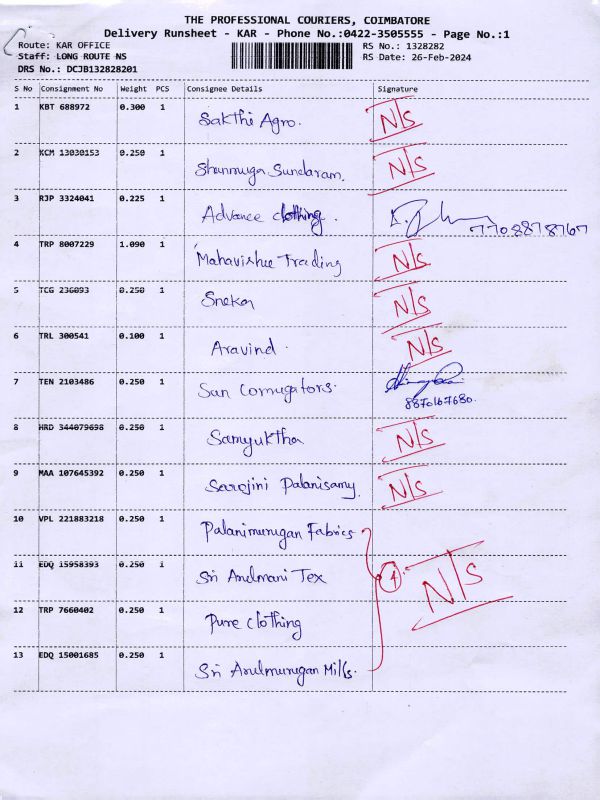 THE PROFESSIONAL COURIERS, COIMBATORE
Delivery Runsheet - KAR - Phone No.:0422-3505555 - Page No.:1
Route: KAR OFFICE RS No.: 1328282
Staff: LONG ROUTE NS RS Date: 26-Feb-2024
DRS No.: DCJB132828201
S No Consignment No Weight PCS Consignee Details Signature
1 KBT 688972 0.300 1 Sakthi Agro. N/S
2 KCM 13030153 0.250 1 Shanmuga Sundaram. N/S
3 RJP 3324041 0.225 1 Advance clothing. 7708878767
4 TRP 8007229 1.090 1 Mahavishu Trading N/S
5 TCG 236093 0.250 1 Sneka N/S
6 TRL 300541 0.100 1 Aravind. N/S
7 TEN 2103486 0.250 1 San Corrugators. 8870167680.
8 HRD 344079698 0.250 1 Samyuktha N/S
9 MAA 107645392 0.250 1 Sarojini Palanisamy. N/S
10 VPL 221883218 0.250 1 Palanimurugan Fabrics
11 EDQ 15958393 0.250 1 Sri Arulmani Tex 4 N/S
12 TRP 7660402 0.250 1 Pure clothing
13 EDQ 15001685 0.250 1 Sri Arulmurugan Mills.